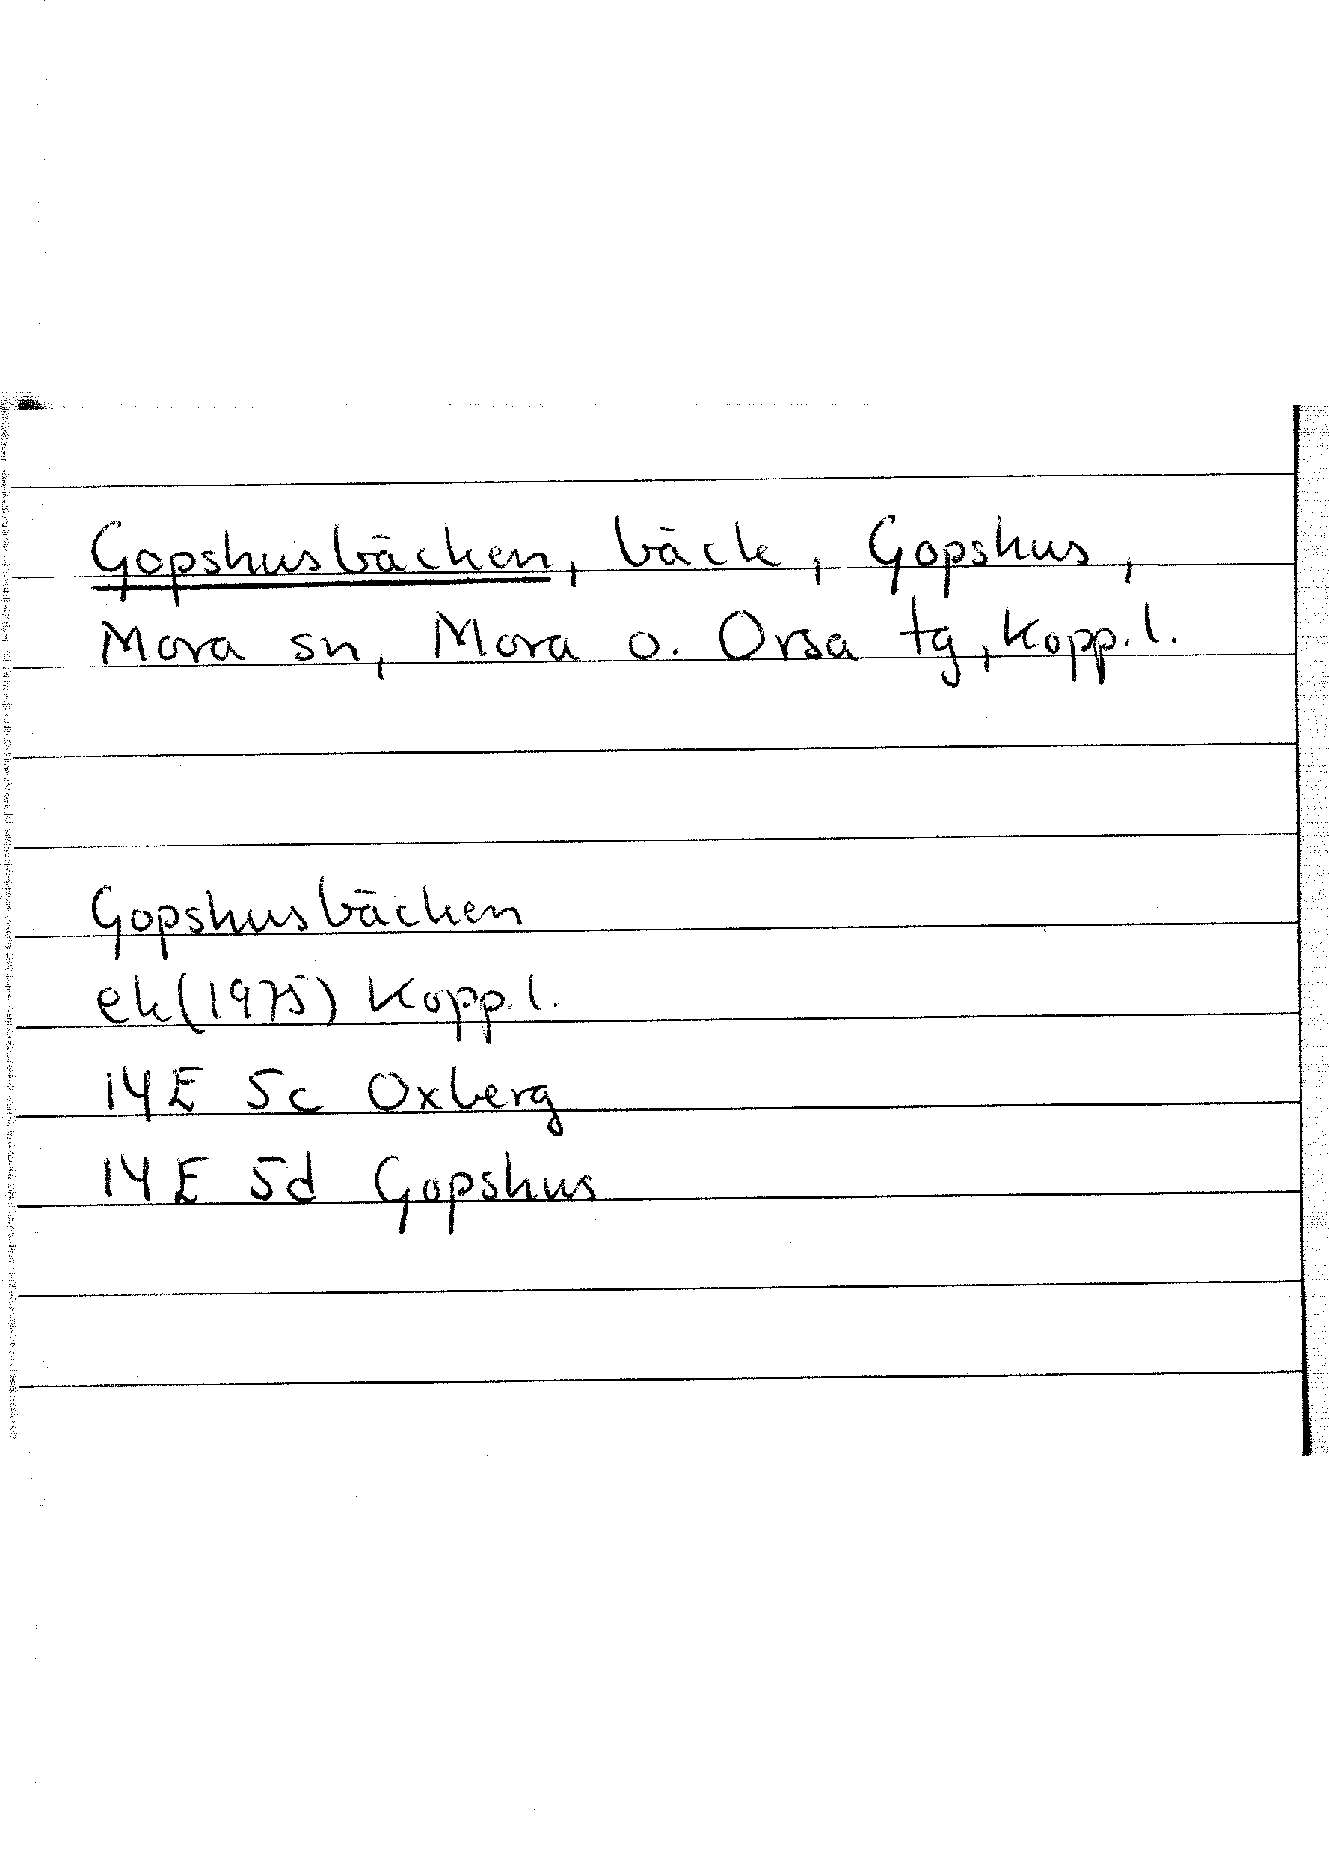 Gopshusbäcken, bäck, Gopshus,
Mora sn, Mora o. Orsa tg, Kopp. l.
Gopshusbäcken
ek (1975) Kopp. l.
14E 5c Oxberg
14E 5d Gopshus